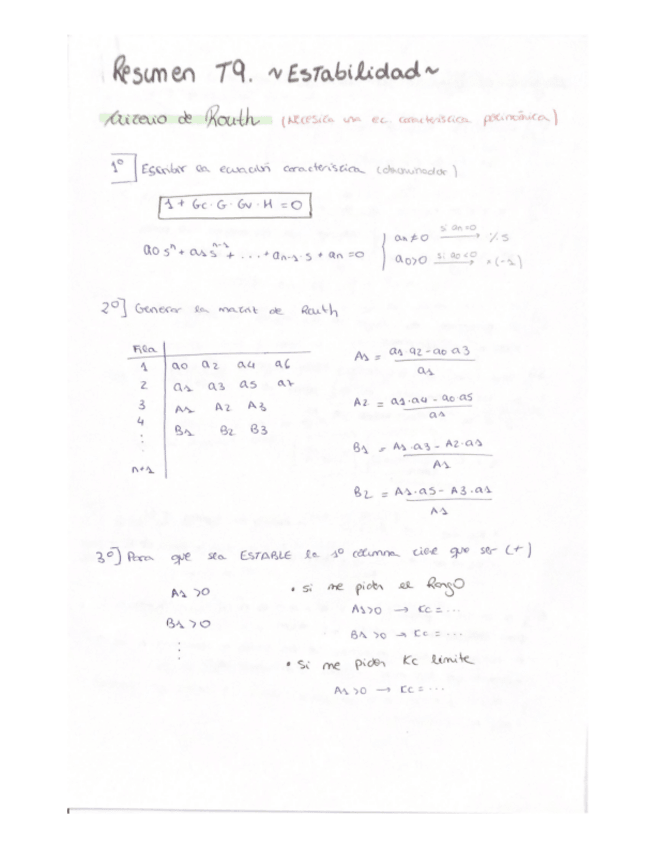 Resumen T9. ~ Estabilidad ~
Criterio de Routh (Necesita una ec característica polinómica)
1º Escribir la ecuación característica (denominador)
1 + Gc · G · Gv · H = 0
a0 s^n + a1 s^n-1 + ... + an-1 · s + an = 0
an ≠ 0 si an=0 → /.s
a0>0 si a0<0 → ·(-1)
2º] Generar la matriz de Routh
Fila
1 a0 a2 a4 a6
2 a1 a3 a5 a7
3 A1 A2 A3
4 B1 B2 B3
⋮
n+1
A1 = a1 a2 - a0 a3 / a1
A2 = a1·a4 - a0·a5 / a1
B1 = A1·a3 - A2·a1 / A1
B2 = A1·a5 - A3·a1 / A1
3º] Para que sea ESTABLE la 1º columna tiene que ser (+)
A1 >0
B1 >0
⋮
• Si me piden el Rango
A1>0 → Kc = ...
B1 >0 → Kc = ...
• Si me piden Kc límite
A1 >0 → Kc = ...